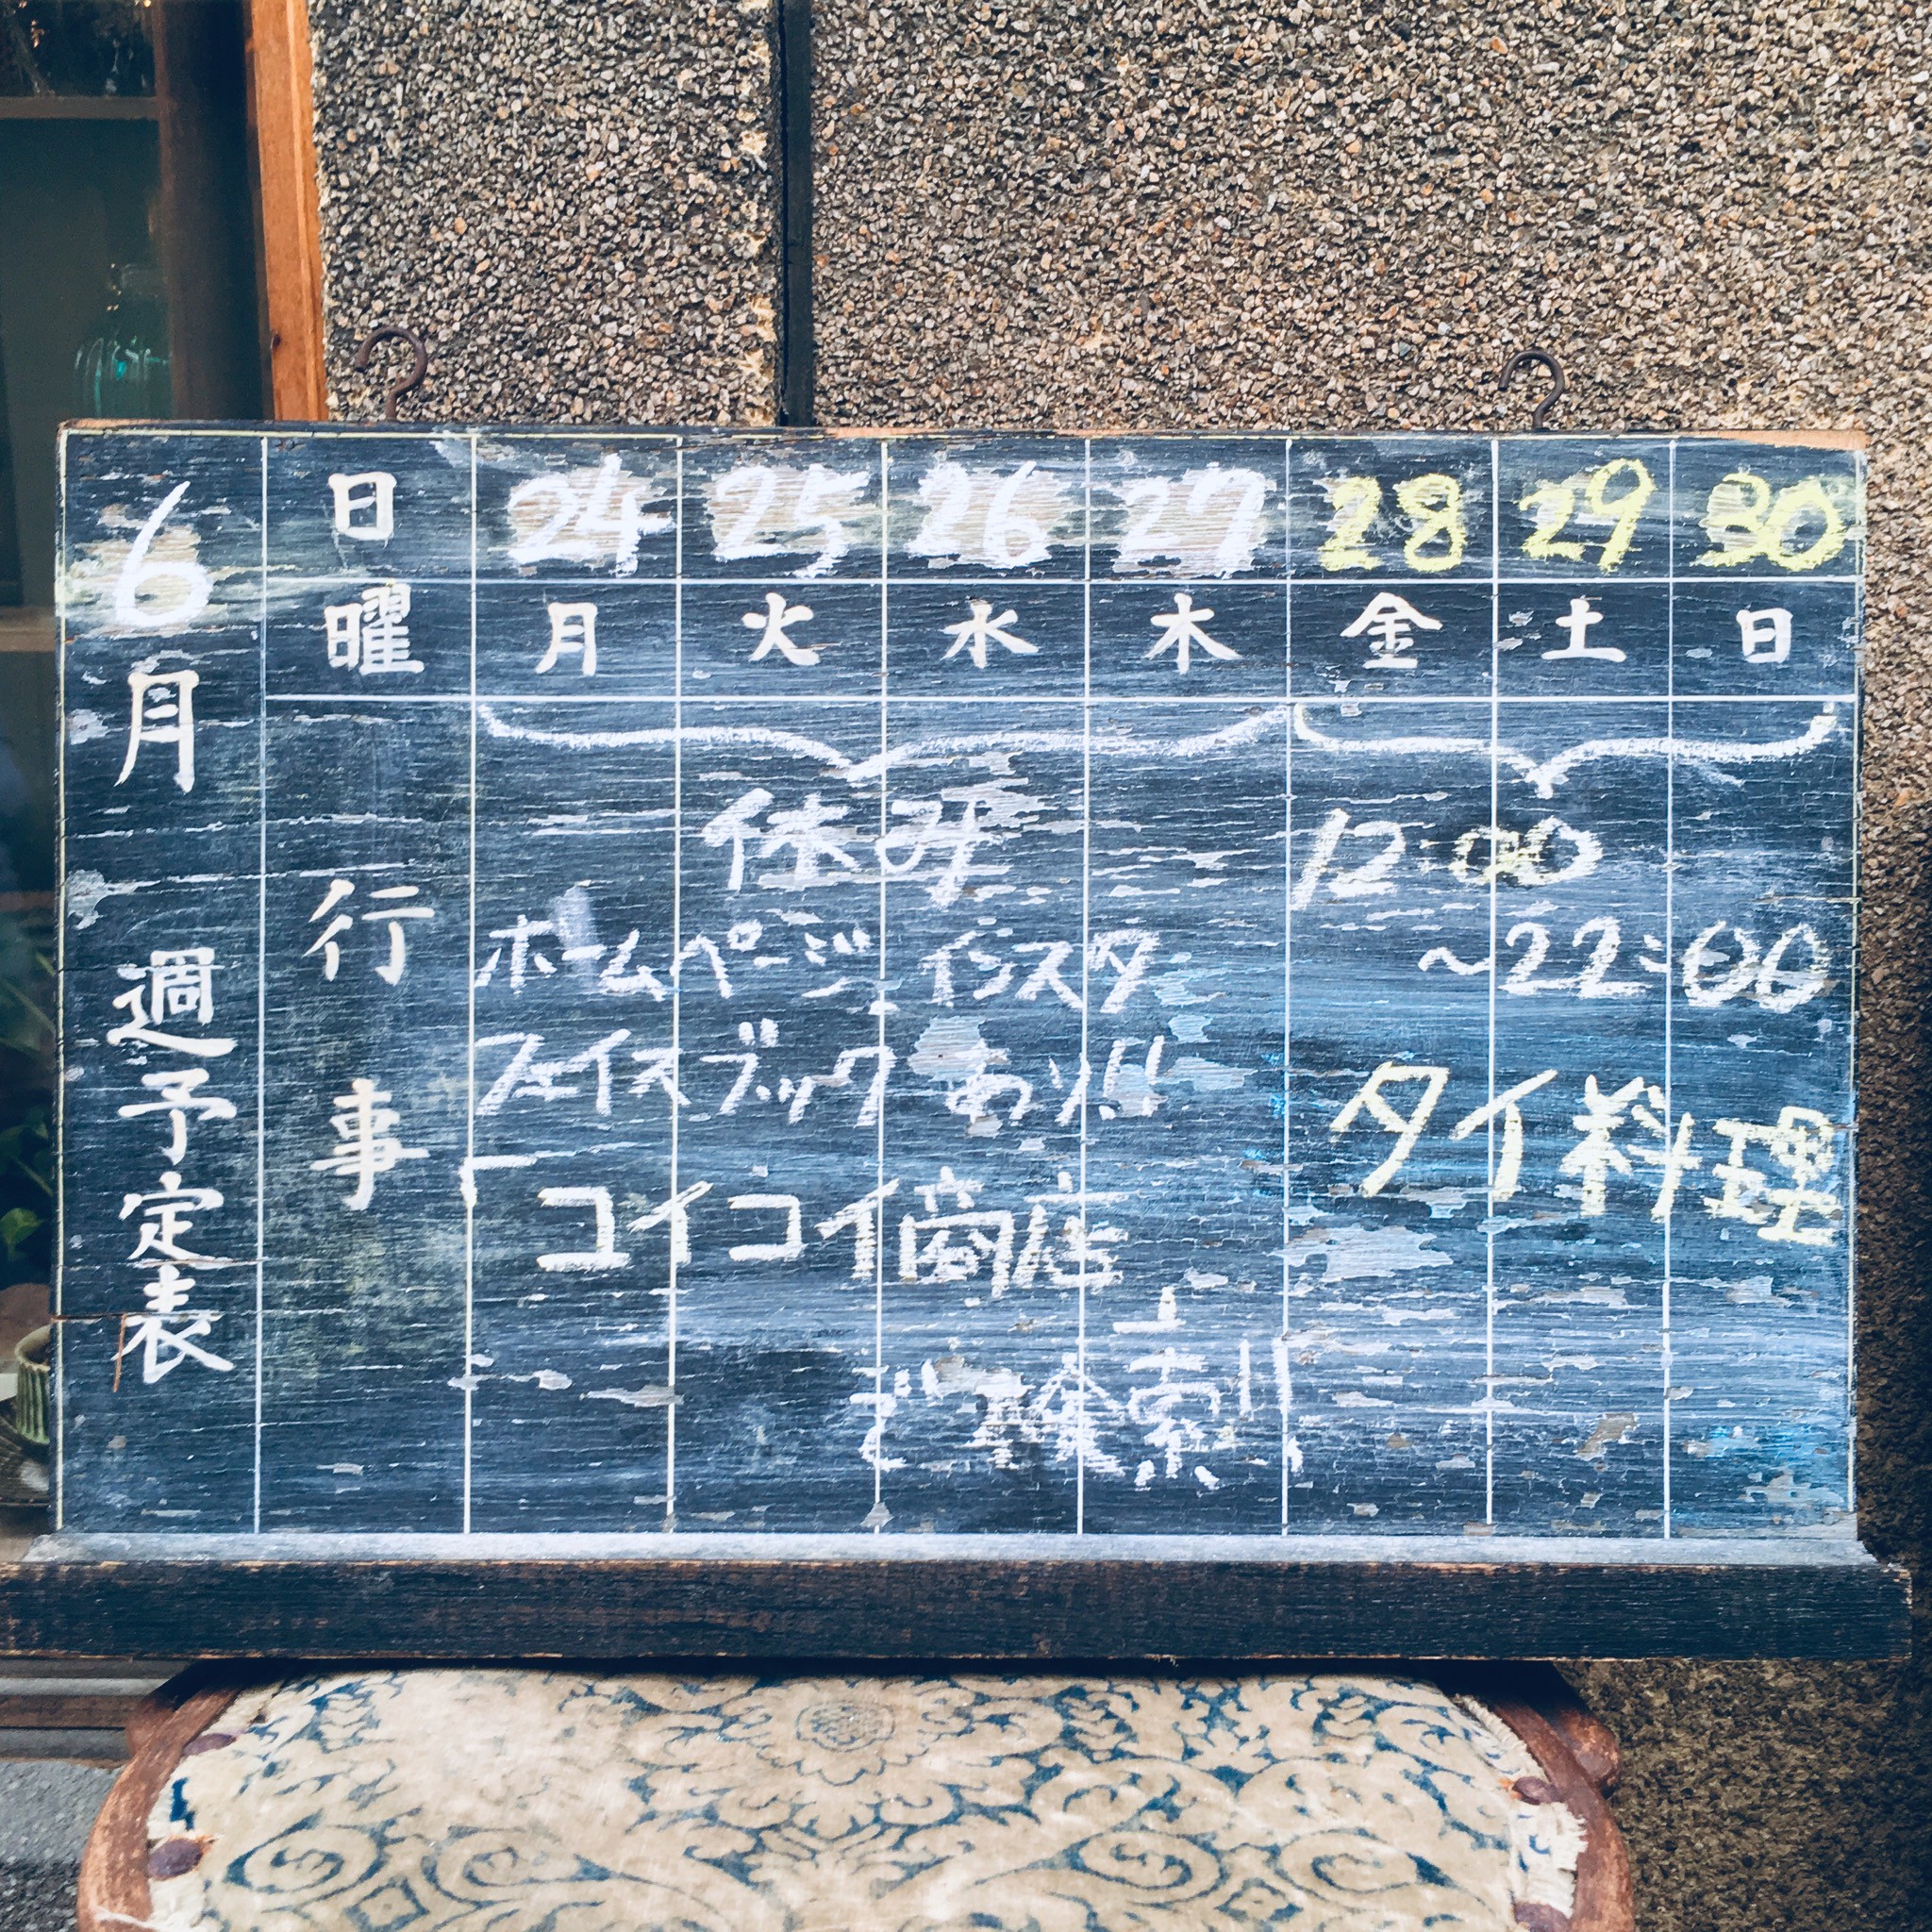 6月 週予定表
日 24 25 26 27 28 29 30
曜 月 火 水 木 金 土 日
行事
休み
ホームページ、インスタ
フェイスブックあり!!
「コイコイ商店」
で検索!!
12:00
~22:00
タイ料理